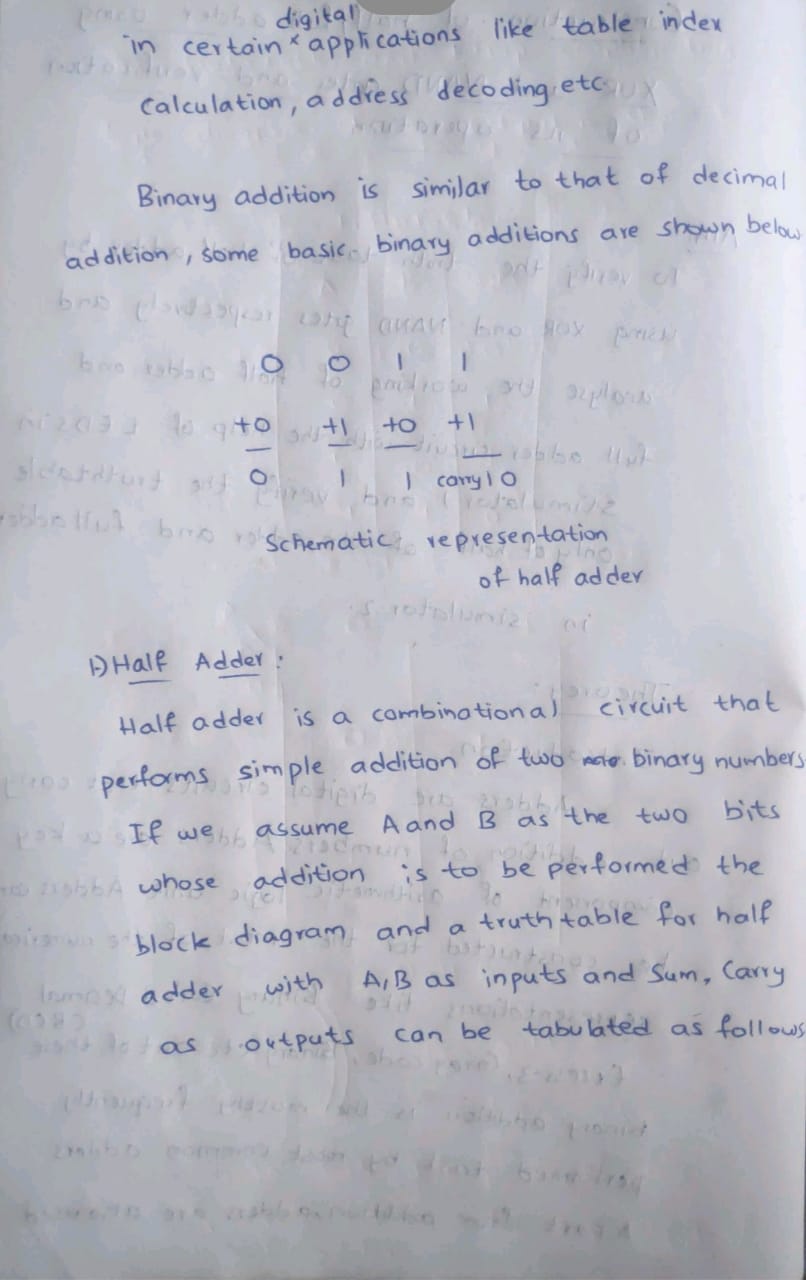 digital
in certain × applications like table index
calculation, address decoding etc
Binary addition is similar to that of decimal
addition, some basic binary additions are shown below
0 0 1 1
+0 +1 +0 +1
0 1 1 carry 1 0
Schematic representation
of half adder
1) Half Adder :
Half adder is a combinational circuit that
performs simple addition of two binary numbers
If we assume A and B as the two bits
whose addition is to be performed the
block diagram and a truth table for half
adder with A, B as inputs and Sum, Carry
as outputs can be tabulated as follows